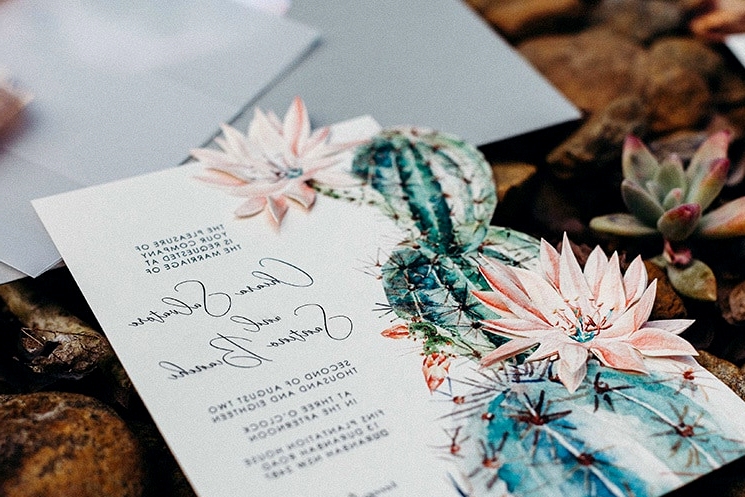 THE PLEASURE OF
YOUR COMPANY
IS REQUESTED AT
THE MARRIAGE OF
Chiara Salvatore
and
Santino Bianchi
SECOND OF AUGUST TWO
THOUSAND AND EIGHTEEN
AT THREE O'CLOCK
IN THE AFTERNOON
FINS PLANTATION HOUSE
13 DURANBAH ROAD
DURANBAH NSW 2487